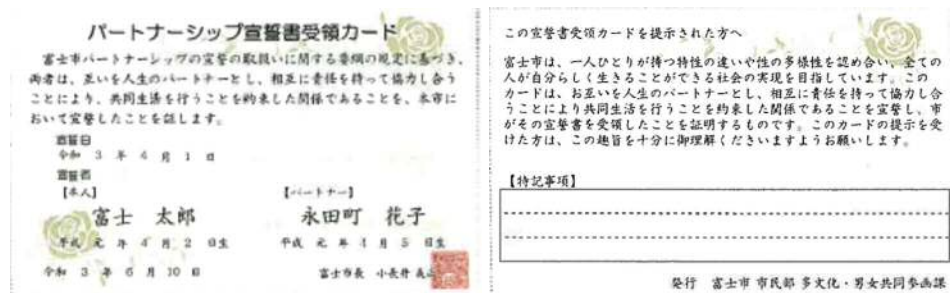 パートナーシップ宣誓書受領カード
富士市パートナーシップの宣誓の取扱いに関する要綱の規定に基づき、
両者は、互いを人生のパートナーとし、相互に責任を持って協力し合う
ことにより、共同生活を行うことを約束した関係であることを、本市に
おいて宣誓したことを証します。
宣誓日
令和 3 年 4 月 1 日
宣誓者
【本人】 【パートナー】
富士 太郎 永田町 花子
平成 元 年 4 月 2 日生 平成 元 年 4 月 5 日生
令和 3 年 6 月 10 日 富士市長 小長井 義
この宣誓書受領カードを提示された方へ
富士市は、一人ひとりが持つ特性の違いや性の多様性を認め合い、全ての
人が自分らしく生きることができる社会の実現を目指しています。この
カードは、お互いを人生のパートナーとし、相互に責任を持って協力し合
うことにより共同生活を行うことを約束した関係であることを宣誓し、市
がその宣誓書を受領したことを証明するものです。このカードの提示を受
けた方は、この趣旨を十分に御理解くださいますようお願いします。
【特記事項】
発行 富士市 市民部 多文化・男女共同参画課